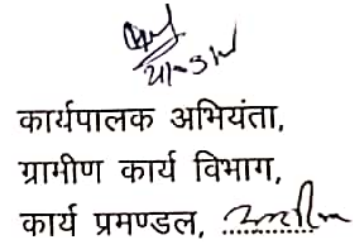 कार्यपालक अभियंता,
ग्रामीण कार्य विभाग,
कार्य प्रमण्डल,